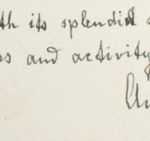 th its splendid
s and activity